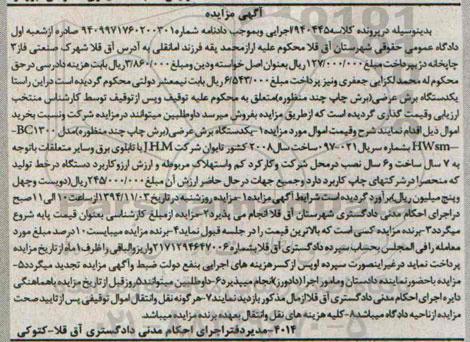 آگهی مزایده
بدینوسیله در پرونده کلاسه ۹۴۰۴۴۵ اجرایی و بموجب دادنامه شماره ۹۴۰۹۹۷۱۷۶۰۲۰۰۳۰۱ صادره از شعبه اول
دادگاه عمومی حقوقی شهرستان آق قلا محکوم علیه آراز محمد یقه فرزند امانقلی به آدرس آق قلا شهرک صنعتی فاز ۳
چاپخانه دژ بپرداخت مبلغ ۱۲۷/۰۰۰/۰۰۰ ریال بعنوان اصل خواسته ودین ومبلغ ۳/۸۶۰/۰۰۰ ریال بابت هزینه دادرسی در حق
محکوم له محمد لکزایی جعفری ونیز پرداخت مبلغ ۶/۵۴۳/۰۰۰ ریال بابت نیمعشر دولتی محکوم گردیده است در این راستا
یکدستگاه برش عرضی (برش چاپ چند منظوره) متعلق به محکوم علیه توقیف وپس از توقیف توسط کارشناس منتخب
ارزیابی وقیمت گذاری گردیده است که از طریق مزایده بفروش میرسد داوطلبین میتوانند در مزایده شرکت ونسبت بخرید
اموال ذیل اقدام نمایند شرح وقیمت اموال مورد مزایده ۱- یکدستگاه برش عرضی (برش چاپ چند منظوره) مدل BC1300-
HWsm- بشماره سریال ۰۹۷۰۰۲۱ ساخت سال ۲۰۰۸ کشور تایوان شرکت J.H.M با تابلوی برق وسایر متعلقات باتوجه
به ۷ سال ساخت و ۶ سال نصب در محل شرکت وکارکرد کم واستهلاک مربوطه و ارزش ارزو کاربرد دستگاه در خط تولید
که منحصرا در شرکتهای چاپ کاربرد دارد وجمیع جهات در حال حاضر ارزش آن مبلغ ۲۴۵/۰۰۰/۰۰۰ ریال (دویست وچهل
وپنج میلیون ریال) برآورد گردیده است شرایط آگهی مزایده: ۱-مزایده روز شنبه در تاریخ ۱۳۹۴/۱۱/۰۳ از ساعت ۱۰ الی ۱۱ صبح
در اجرای احکام مدنی دادگستری شهرستان آق قلا انجام می پذیرد ۲-مزایده از مبلغ کارشناسی بعنوان قیمت پایه شروع
میگردد ۳-برنده مزایده کسی است که بالاترین قیمت را در جلسه قبول نماید ۴-برنده مزایده میبایست ۱۰ درصد مبلغ مورد
معامله را فی المجلس بحساب سپرده دادگستری آق قلا بشماره ۲۱۷۱۲۹۴۶۴۷۰۰۶ واریز والباقی را ظرف ۱ ماه از تاریخ مزایده
پرداخت نماید در غیر اینصورت سپرده او پس از کسر هزینه های اجرایی بنفع دولت ضبط وآگهی مزایده تجدید میگردد ۵-
مزایده با حضور نماینده دادستان ومامور اجرا (دادورز) انجام میپذیرد ۶-داوطلبین میتوانند ۵ روز قبل از تاریخ مزایده با هماهنگی
دایره اجرای احکام مدنی دادگستری آق قلا از مال مذکور بازدید نمایند ۷-هر گونه نقل وانتقال اموال توقیفی پس از تایید صحت
مزایده از ناحیه دادگاه میباشد ۸-کلیه هزینه های نقل وانتقال بعهده برنده مزایده میباشد.
۴۰۱۴-مدیر دفتر اجرای احکام مدنی دادگستری آق قلا-کتوکی